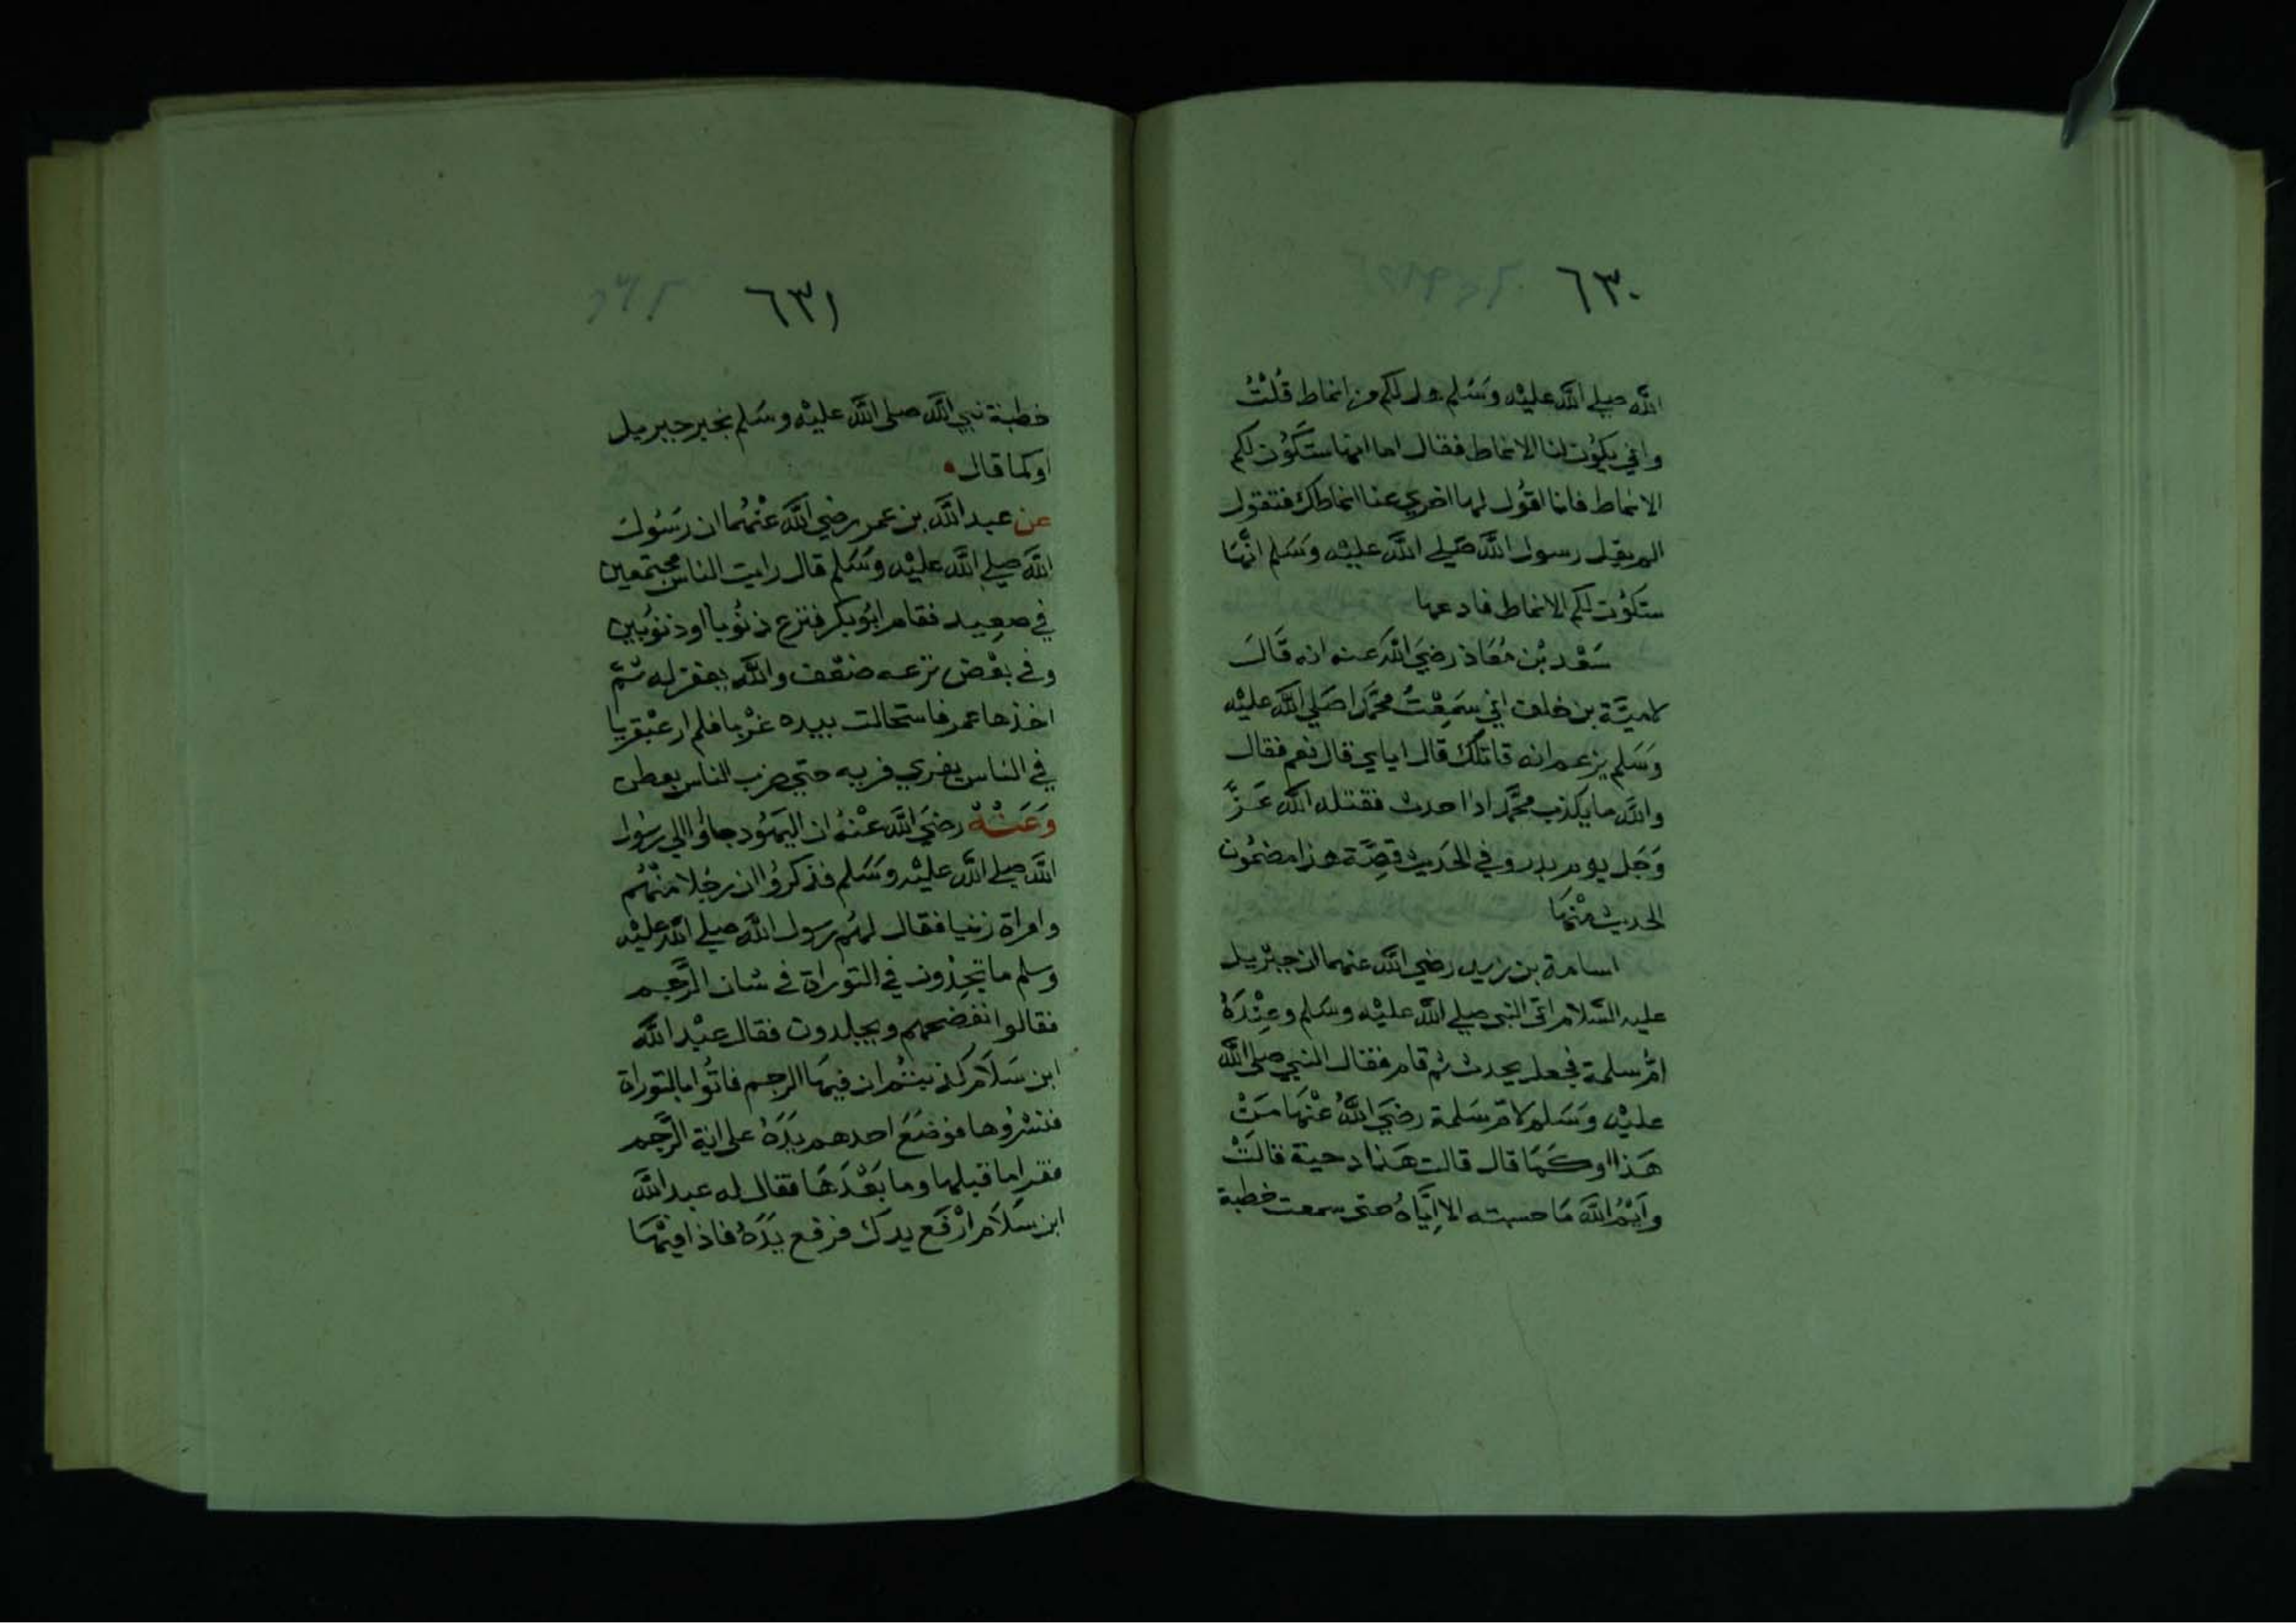 ٦٣٠
الله صلي الله عليْه وَسَلم هل لكم من انماط قُلْتُ
واني يكوُن لنا الانماط فقال اما انها ستَكوُن لكم
الانماط فانا اقوُل لها اخري عنا انماطك فتقول
الم يقل رسول الله صَلي الله عليْه وَسَلم انَّهَا
ستكوُن لكم الانماط فادعها
سَعْد بْن مُعَاذ رضيَ الله عنه انه قَالَ
لاميَّة بن خلف اني سَمِعْتُ محَمَّدا صَلي الله عليْه
وَسَلم يزعم انه قاتلك قال اياي قال نعم فقال
والله ما يكذب محمَّد اذا حدث فقتله الله عَزَّ
وَجَل يوم بدر وفي الحَديث قِصَّة هذا مضمُون
الحديث مْنهَا
اسامة بن زيد رضي الله عنهما ان جبْريل
عليه السَّلام اتي النبي صلي الله عليْه وسَلم وعِنْدَهُ
امُّ سلمة فجعل يحدث ثم قام فقال النبي صلي الله
عليْه وَسَلم لامّ سَلمة رضيَ اللهُ عْنهَا مَنْ
هَذا اوكَمَا قال قالت هَذا دحية قالَتْ
وايْمُ الله مَا حسبته الا اِيَّاهُ حتي سمعت خطبة
٦٣١
خطبة نبي الله صلى الله عليْه وسَلم بخبر جبريل
اوكما قال
عن عبد الله بن عمر رضي الله عنْهُما ان رَسُولَ
الله صلي الله عليْه وَسَلم قال رايت الناس مجتمعين
في صعِيد فقام ابُو بكر فنزع ذنوُباً او ذنوُبين
وفي بعْض نزعه ضعْف والله يغفر له ثمّ
اخذها عمر فاستحالت بيده غرْبا فلم ار عبْقريا
في الناس يفري فريه حتي ضرب الناس بعطن
وَعَنْهُ رضيَ الله عنْهُ ان اليهوُد جاؤا الي رسُول
الله صلي الله عليْه وَسَلم فذكروُا ان رجُلا منْهُم
وامراة زنيا فقال لهُم رسول الله صلي الله عليْه
وسلم ما تجِدُون في التوراة في شان الرَّجم
فقالوا نفضحهم ويجلدون فقال عبْد الله
ابن سَلاَم كذبتُم ان فيهَا الرجم فاتوُا بالتوراة
فنشرُوها فوضَعَ احدهم يَدَهُ على اية الرَّجم
فقرا ما قبلها وما بَعْدَهَا فقال له عبد الله
ابن سَلاَم ارْفَع يدك فرفع يَدَهُ فاذا فيْهَا